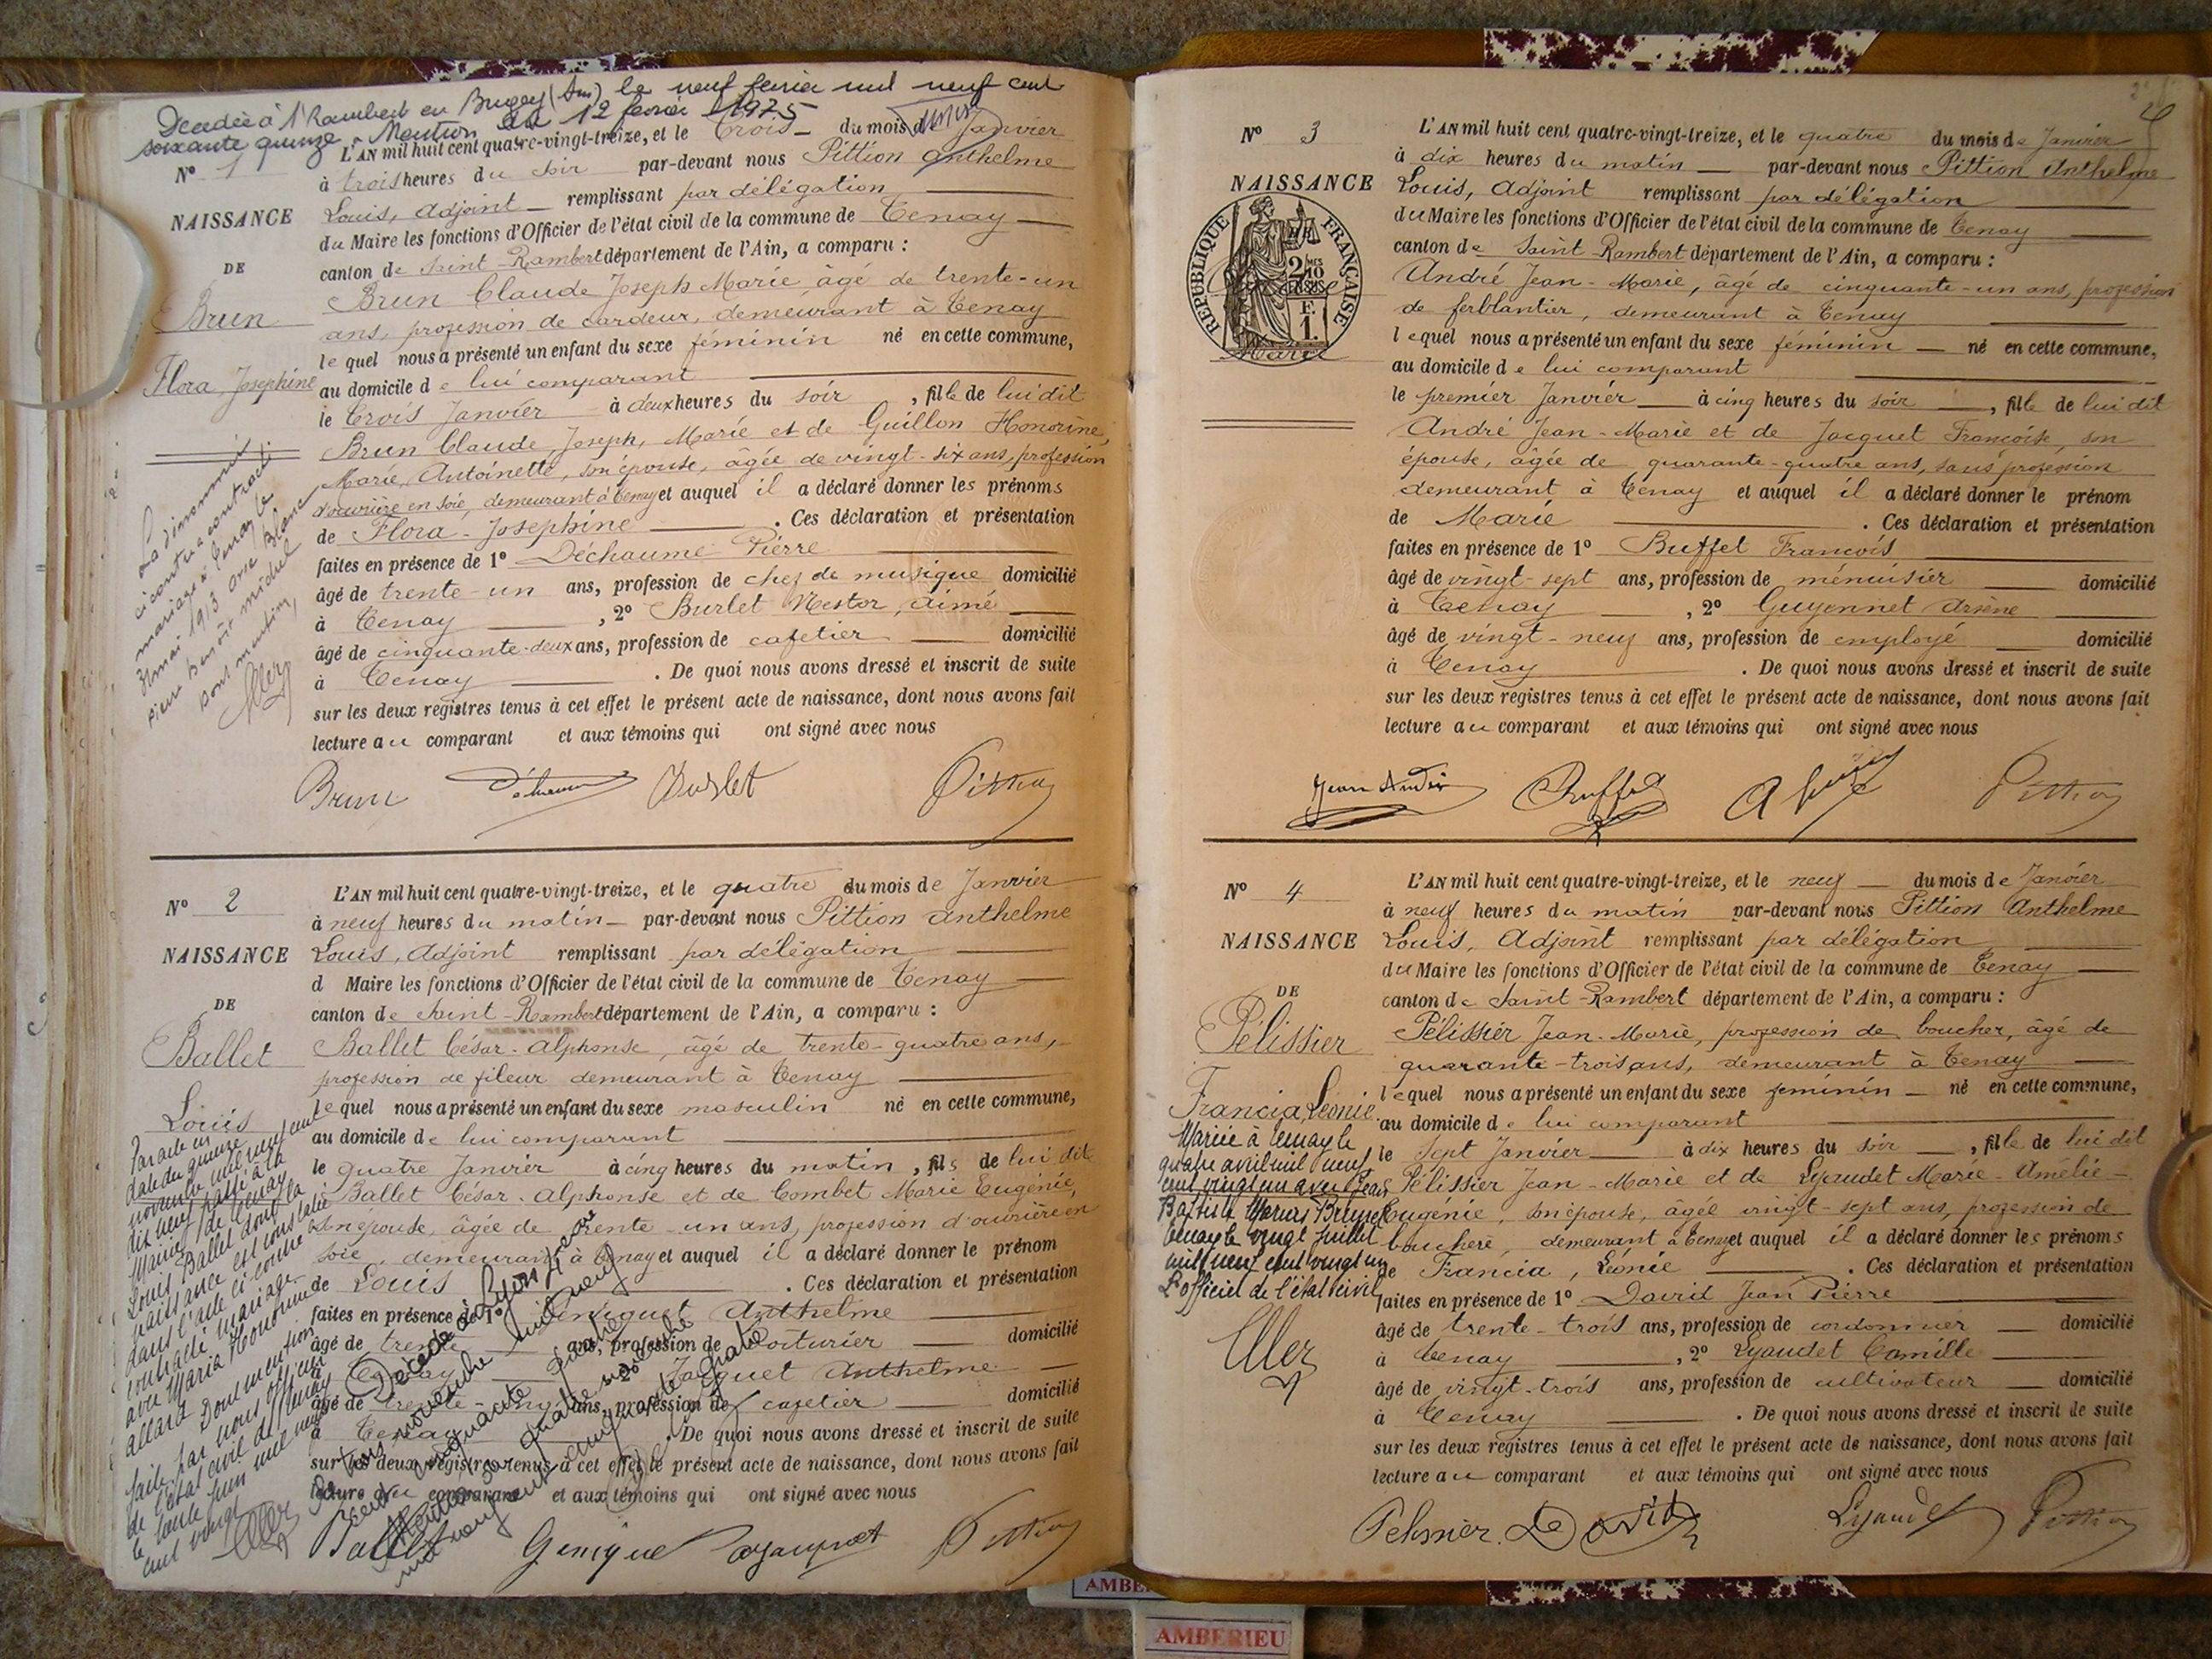 Decedée à St Rambert en Bugey (Ain) le neuf fevrier mil neuf cent
soixante quinze. Mention du 12 fevrier 1975
L'AN mil huit cent quatre-vingt-treize, et le trois du mois de Janvier
N° 1
à trois heures du soir par-devant nous Pittion Anthelme
NAISSANCE
Louis, Adjoint remplissant par délégation
du Maire les fonctions d'Officier de l'état civil de la commune de Tenay
DE
canton de Saint-Rambert département de l'Ain, a comparu :
Brun
Brun Claude Joseph Marie, âgé de trente-un
ans, profession de cardeur, demeurant à Tenay
lequel nous a présenté un enfant du sexe féminin né en cette commune,
Flora Josephine
au domicile de lui comparant
le trois Janvier à deux heures du soir, fille de lui dit
Brun Claude, Joseph, Marie et de Guillon Honorine,
Marie, Antoinette, son épouse, âgée de vingt-six ans, profession
d'ouvrière en soie, demeurant à Tenay et auquel il a déclaré donner les prénoms
de Flora-Josephine. Ces déclaration et présentation
faites en présence de 1° Déchaume Pierre
âgé de trente-un ans, profession de chef de musique domicilié
à Tenay, 2° Burlet Nestor, Aimé
âgé de cinquante-deux ans, profession de cafetier domicilié
à Tenay. De quoi nous avons dressé et inscrit de suite
sur les deux registres tenus à cet effet le présent acte de naissance, dont nous avons fait
lecture au comparant et aux témoins qui ont signé avec nous
La dénommée
ci contre a contracté
mariage à Tenay le
31 mai 1913 avec Blanc
Pierre Benoît Michel
Dont mention,
Brun Burlet Pittion
N° 2
L'AN mil huit cent quatre-vingt-treize, et le quatre du mois de Janvier
à neuf heures du matin par-devant nous Pittion Anthelme
NAISSANCE
Louis, Adjoint remplissant par délégation
d Maire les fonctions d'Officier de l'état civil de la commune de Tenay
DE
canton de Saint-Rambert département de l'Ain, a comparu :
Ballet
Ballet César-Alphonse, âgé de trente-quatre ans,
profession de fileur demeurant à Tenay
Louis
lequel nous a présenté un enfant du sexe masculin né en cette commune,
au domicile de lui comparant
le quatre Janvier à cinq heures du matin, fils de lui dit
Ballet César-Alphonse et de Combet Marie Eugénie,
son épouse, âgée de trente-un ans, profession d'ouvrière en
soie, demeurant à Tenay et auquel il a déclaré donner le prénom
de Louis. Ces déclaration et présentation
faites en présence de 1° Anthelme
âgé de trente ans, profession de voiturier domicilié
à Tenay 2° Jacquet Anthelme
âgé de trente ans, profession de cafetier domicilié
à Tenay. De quoi nous avons dressé et inscrit de suite
sur les deux registres tenus à cet effet le présent acte de naissance, dont nous avons fait
lecture au comparant et aux témoins qui ont signé avec nous
Par acte en
date du quinze
novembre mil neuf cent
dix neuf passé à la
Mairie de Tenay
Louis Ballet dont la
naissance est constatée
dans l'acte ci contre a
contracté mariage
avec Maria Honorine
Allard Dont mention
faite par nous officier
de l'état civil de Tenay
le trente juin mil neuf
cent vingt
Décédé à Lyon
novembre mil neuf
cent cinquante quatre
mil neuf cent cinquante quatre
Ballet Pittion
N° 3
L'AN mil huit cent quatre-vingt-treize, et le quatre du mois de Janvier
à dix heures du matin par-devant nous Pittion Anthelme
NAISSANCE
Louis, Adjoint remplissant par délégation
du Maire les fonctions d'Officier de l'état civil de la commune de Tenay
canton de Saint-Rambert département de l'Ain, a comparu :
RÉPUBLIQUE FRANÇAISE
Marie
André Jean-Marie, âgé de cinquante-un ans, profession
de ferblantier, demeurant à Tenay
lequel nous a présenté un enfant du sexe féminin né en cette commune,
au domicile de lui comparant
le premier Janvier à cinq heures du soir, fille de lui dit
André Jean-Marie et de Jacquet Françoise, son
épouse, âgée de quarante-quatre ans, sans profession
demeurant à Tenay et auquel il a déclaré donner le prénom
de Marie. Ces déclaration et présentation
faites en présence de 1° Buffet François
âgé de vingt-sept ans, profession de menuisier domicilié
à Tenay, 2° Guyennet Arsène
âgé de vingt-neuf ans, profession de employé domicilié
à Tenay. De quoi nous avons dressé et inscrit de suite
sur les deux registres tenus à cet effet le présent acte de naissance, dont nous avons fait
lecture au comparant et aux témoins qui ont signé avec nous
Jean André Buffet Pittion
N° 4
L'AN mil huit cent quatre-vingt-treize, et le neuf du mois de Janvier
à neuf heures du matin par-devant nous Pittion Anthelme
NAISSANCE
Louis, Adjoint remplissant par délégation
du Maire les fonctions d'Officier de l'état civil de la commune de Tenay
DE
canton de Saint-Rambert département de l'Ain, a comparu :
Pélissier
Pélissier Jean-Marie, profession de boucher, âgé de
quarante-trois ans, demeurant à Tenay
lequel nous a présenté un enfant du sexe féminin né en cette commune,
Francia, Léonie
au domicile de lui comparant
le sept Janvier à dix heures du soir, fille de lui dit
Pélissier Jean-Marie et de Lyaudet Marie-Amélie-
Eugénie, son épouse, âgée vingt-sept ans, profession de
bouchère, demeurant à Tenay et auquel il a déclaré donner les prénoms
de Francia, Léonie. Ces déclaration et présentation
faites en présence de 1° David Jean Pierre
âgé de trente-trois ans, profession de cordonnier domicilié
à Tenay, 2° Lyaudet Camille
âgé de vingt-trois ans, profession de cultivateur domicilié
à Tenay. De quoi nous avons dressé et inscrit de suite
sur les deux registres tenus à cet effet le présent acte de naissance, dont nous avons fait
lecture au comparant et aux témoins qui ont signé avec nous
Mariée à Tenay le
quatre avril mil neuf
cent vingt un avec Jean
Baptiste Marius Brunet
Tenay le vingt juillet
mil neuf cent vingt un
L'officier de l'état civil
Pelissier David Lyaudet Pittion
AMBERIEU